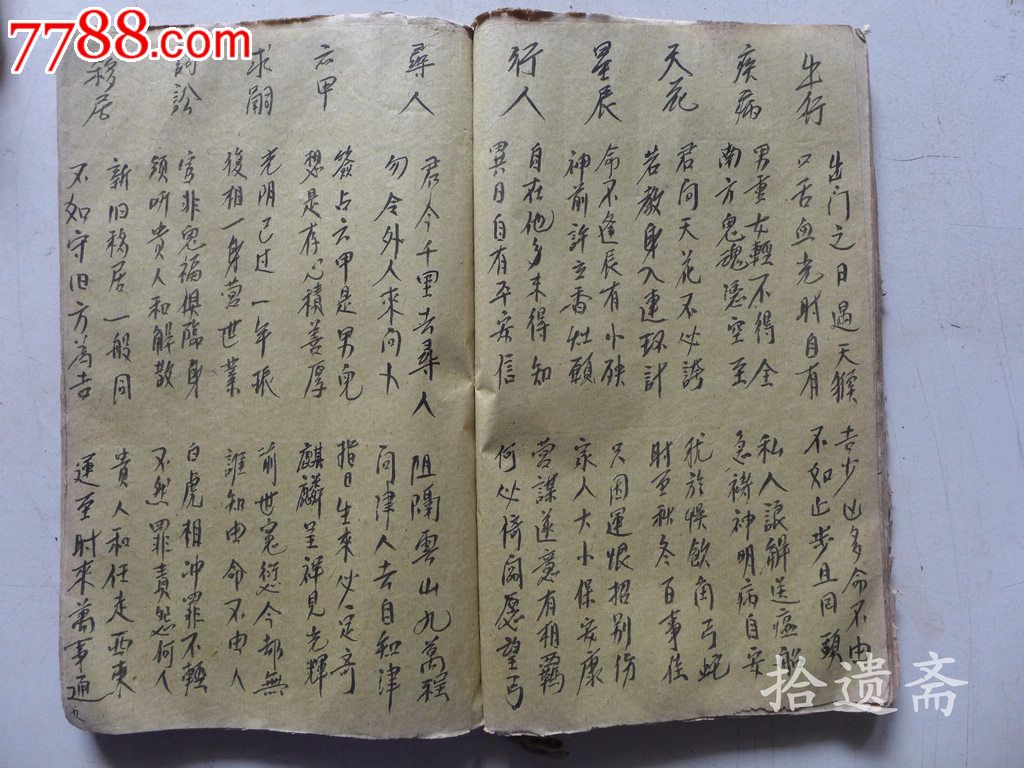 7788.com
出行
出门之日遇天猴 吉少凶多命不由
口舌血光时自有 不如止步且回頭
疾病
男重女輕不得全 私人詼解送瘟船
南方鬼魂憑空至 急禱神明病自安
天花
君问天花不必誇 犹於悞飲角弓蛇
若教身入連环計 时至秋冬百事佳
星辰
命不逢辰有小 只因運恨招别伤
神前許立香灶願 家人大小保安康
行人
自在他多未得知 营謀遂意有相羈
異日自有平安信 何必倚閭愿望弓
尋人
君今千里去尋人 阻隔雲山九萬程
勿令外人來问卜 问津人去自知津
六甲
簽占六甲是男兒 指日生來必定奇
想是存心積善厚 麒麟呈祥見光輝
求嗣
光阴已过一年 前世冤愆今都無
後相一身营世業 誰知由命不由人
詞訟
官非鬼禍俱臨身 白虎相冲罪不輕
須听贵人和解散 不然罪責怨何人
移居
新旧移居一般同 貴人和任走西東
不如守旧方為吉 運至时來萬事通
拾遗斋